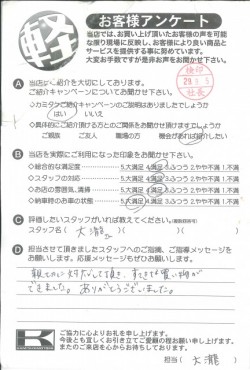 軽
お客様アンケート
当店では、お買い上げ頂いたお客様の声を可能
な限り現場に反映し、お客様により良い商品と
サービスを提供する事に努めております。
大変お手数ですが是非お声をお聞かせ下さい。
検印
29.
社長
Ⓐ 当店はご紹介を大切にしております。
ご紹介キャンペーンについてお聞かせ下さい。
◇カミタケご紹介キャンペーンのご説明はありましたでしょうか
はい いいえ
◇具体的にご紹介頂ける方とのご関係をお聞かせ頂けますでしょうか
ご親族 ご友人 職場の方 機会があれば紹介したい
Ⓑ 当店を実際にご利用になった印象をお聞かせ下さい。
◇総合的な満足度 5.大満足 4.満足 3.ふつう 2.やや不満 1.不満
◇スタッフの対応 5.大満足 4.満足 3.ふつう 2.やや不満 1.不満
◇お店の雰囲気、清掃 5.大満足 4.満足 3.ふつう 2.やや不満 1.不満
◇納車時のお車の状態 5.大満足 4.満足 3.ふつう 2.やや不満 1.不満
Ⓒ 評価したいスタッフがいれば教えてください。
スタッフ名( 大瀧 )( )( )
Ⓓ 担当させて頂きましたスタッフへのご指摘、ご指導メッセージを
お願いします。応援メッセージもぜひお願いします。
親切に対応して頂き、すてきな買い物が
できました。ありがとうございました。
K
ご協力に心よりお礼を申し上げます。
今後とも宜しくお引き立てご愛顧の程お願い申し上げます。
またのご来店を心からお待ちしております。
担当( 大瀧 )